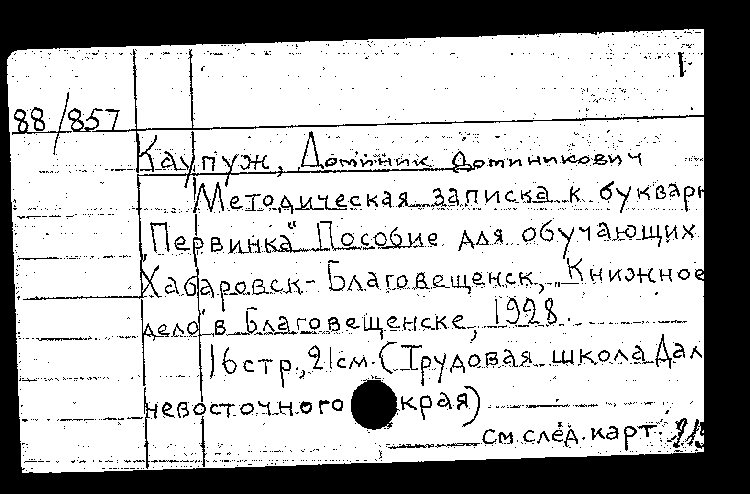 88/857
Каупуж, Доминик Доминикович
Методическая записка к буквар
„Первинка“ Пособие для обучающих
Хабаровск-Благовещенск, „Книжное
дело“ в Благовещенске, 1928.
16 стр., 21 см. (Трудовая школа Даль
невосточного края)
см. след. карт.